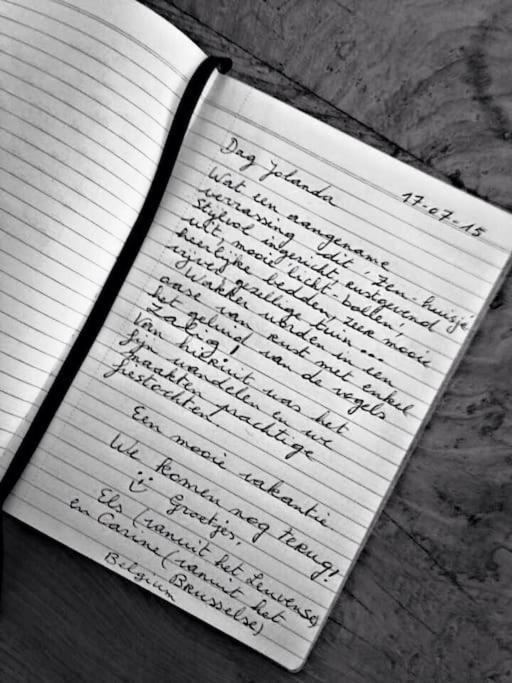 17-07-15
Dag Yolanda
Wat een aangename
verrassing dit 'Zen-huisje'
stijlvol ingericht, rustgevend
wit, mooie licht-bollen,
heerlijke bedden, zeer mooie
vrije gezellige tuin...
Wakker worden in een
oase van rust met enkel
het geluid van de vogels
Zalig!
Van hieruit was het
fijn wandelen en we
maakten prachtige
fietstochten.
Een mooie vakantie
We komen nog terug!
Groetjes.
Els (vanuit het Leuvense)
en Carine (vanuit het
Brusselse)
Belgium